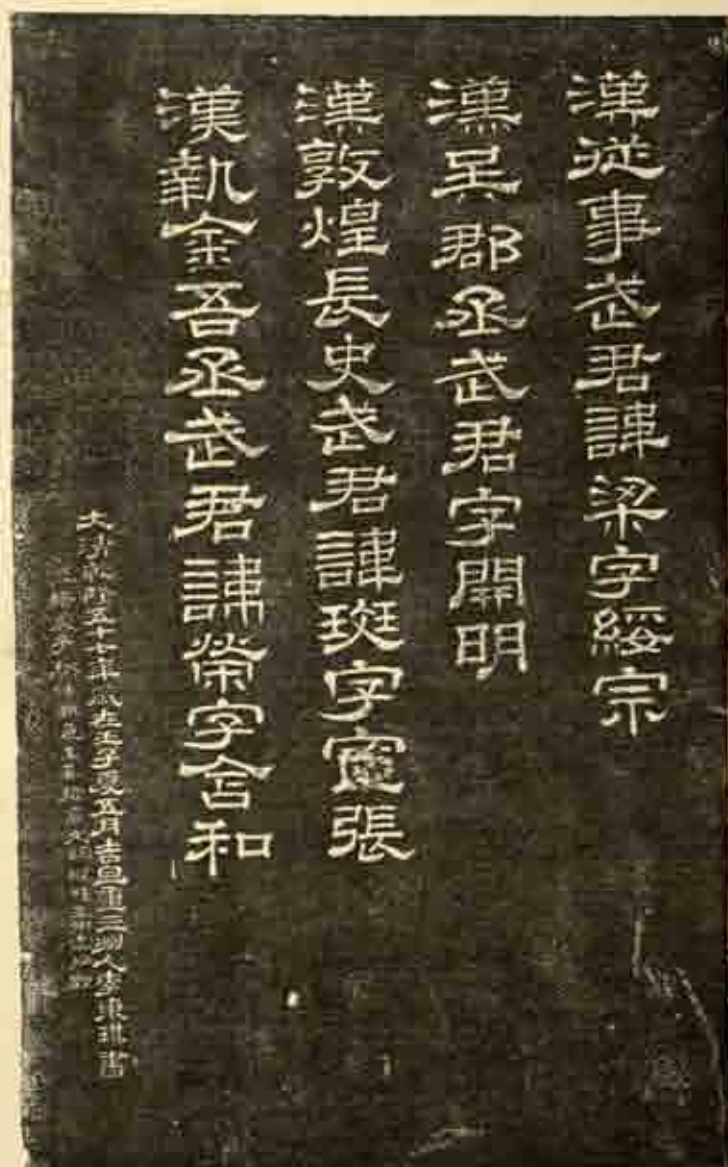 漢從事武君諱梁字綏宗
漢吳郡丞武君字開明
漢敦煌長史武君諱斑字宣張
漢執金吾丞武君諱榮字含和
大清乾隆五十七年歲在壬子夏五月吉旦 李東琪書